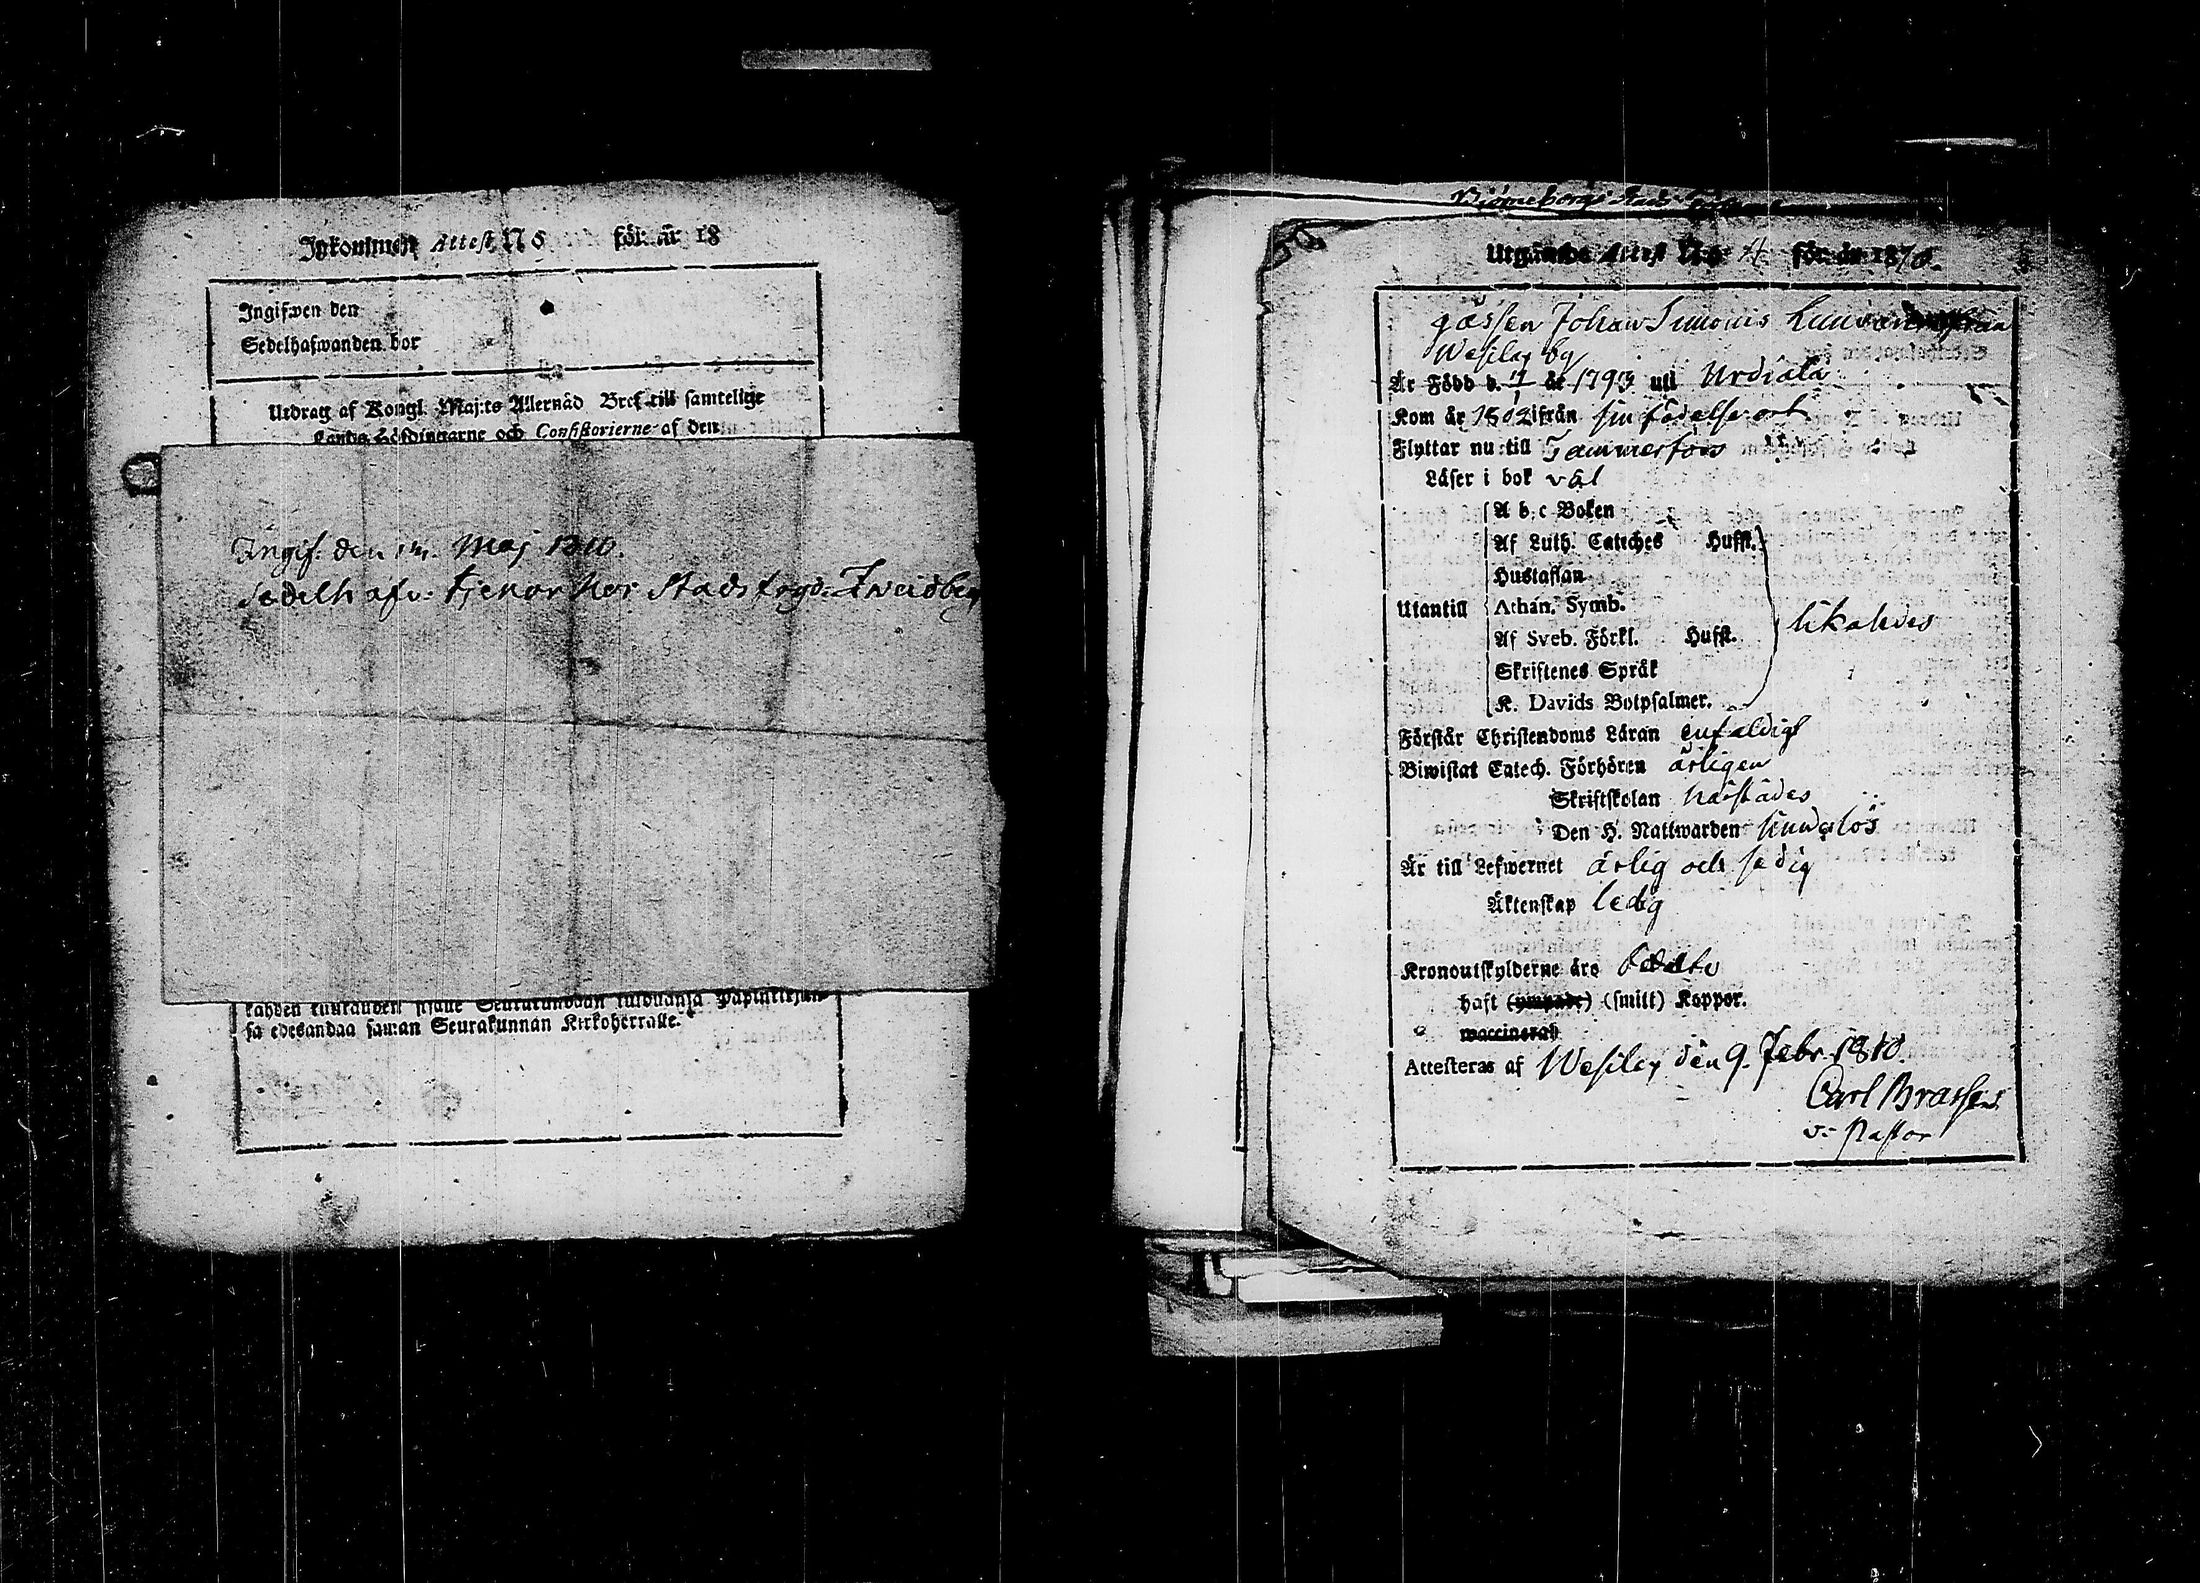 Inkommen Attest No för år 18
Ingifwen den
Sedelhafwanden bor
Utdrag af Kongl. Maj:ts Allernåd Bref till samtelige
Landshöfdingarne och Consistorierne af den
Ingif: den Maj 1810.
Sedelhafv: tjenar hos Stadsfogd:
sa edesandaa saman Seurakunnan Kirkoherralle.
Björneborgs Stad
Utgående Attest No 4 för år 1810.
gåssen Johan Simonis från
Wesilax by
Är Född d. år 1793 uti Urdiala
Kom år 1802 ifrån sin födelse ort
Flyttar nu till Tammerfors
Läser i bok väl
A b c Boken
Af Luth. Catiches Hufst.
Hustaflan
Utantill Athan. Symb. likaledes
Af Sveb. Förkl. Hufst.
Skriftenes Språk
K. Davids Botpsalmer.
Förstår Christendoms Läran enfaldigt
Biwistat Catech. Förhören årligen
Skriftskolan
Den H. Nattwarden
Är till Lefwernet ärlig och sedig
Äktenskap ledig
Kronoutskylderne äro
haft (ympade) (smitt) Koppor.
waccinerad
Attesteras af Wesilax den 9. Febr. 1810.
Carl
v: Pastor